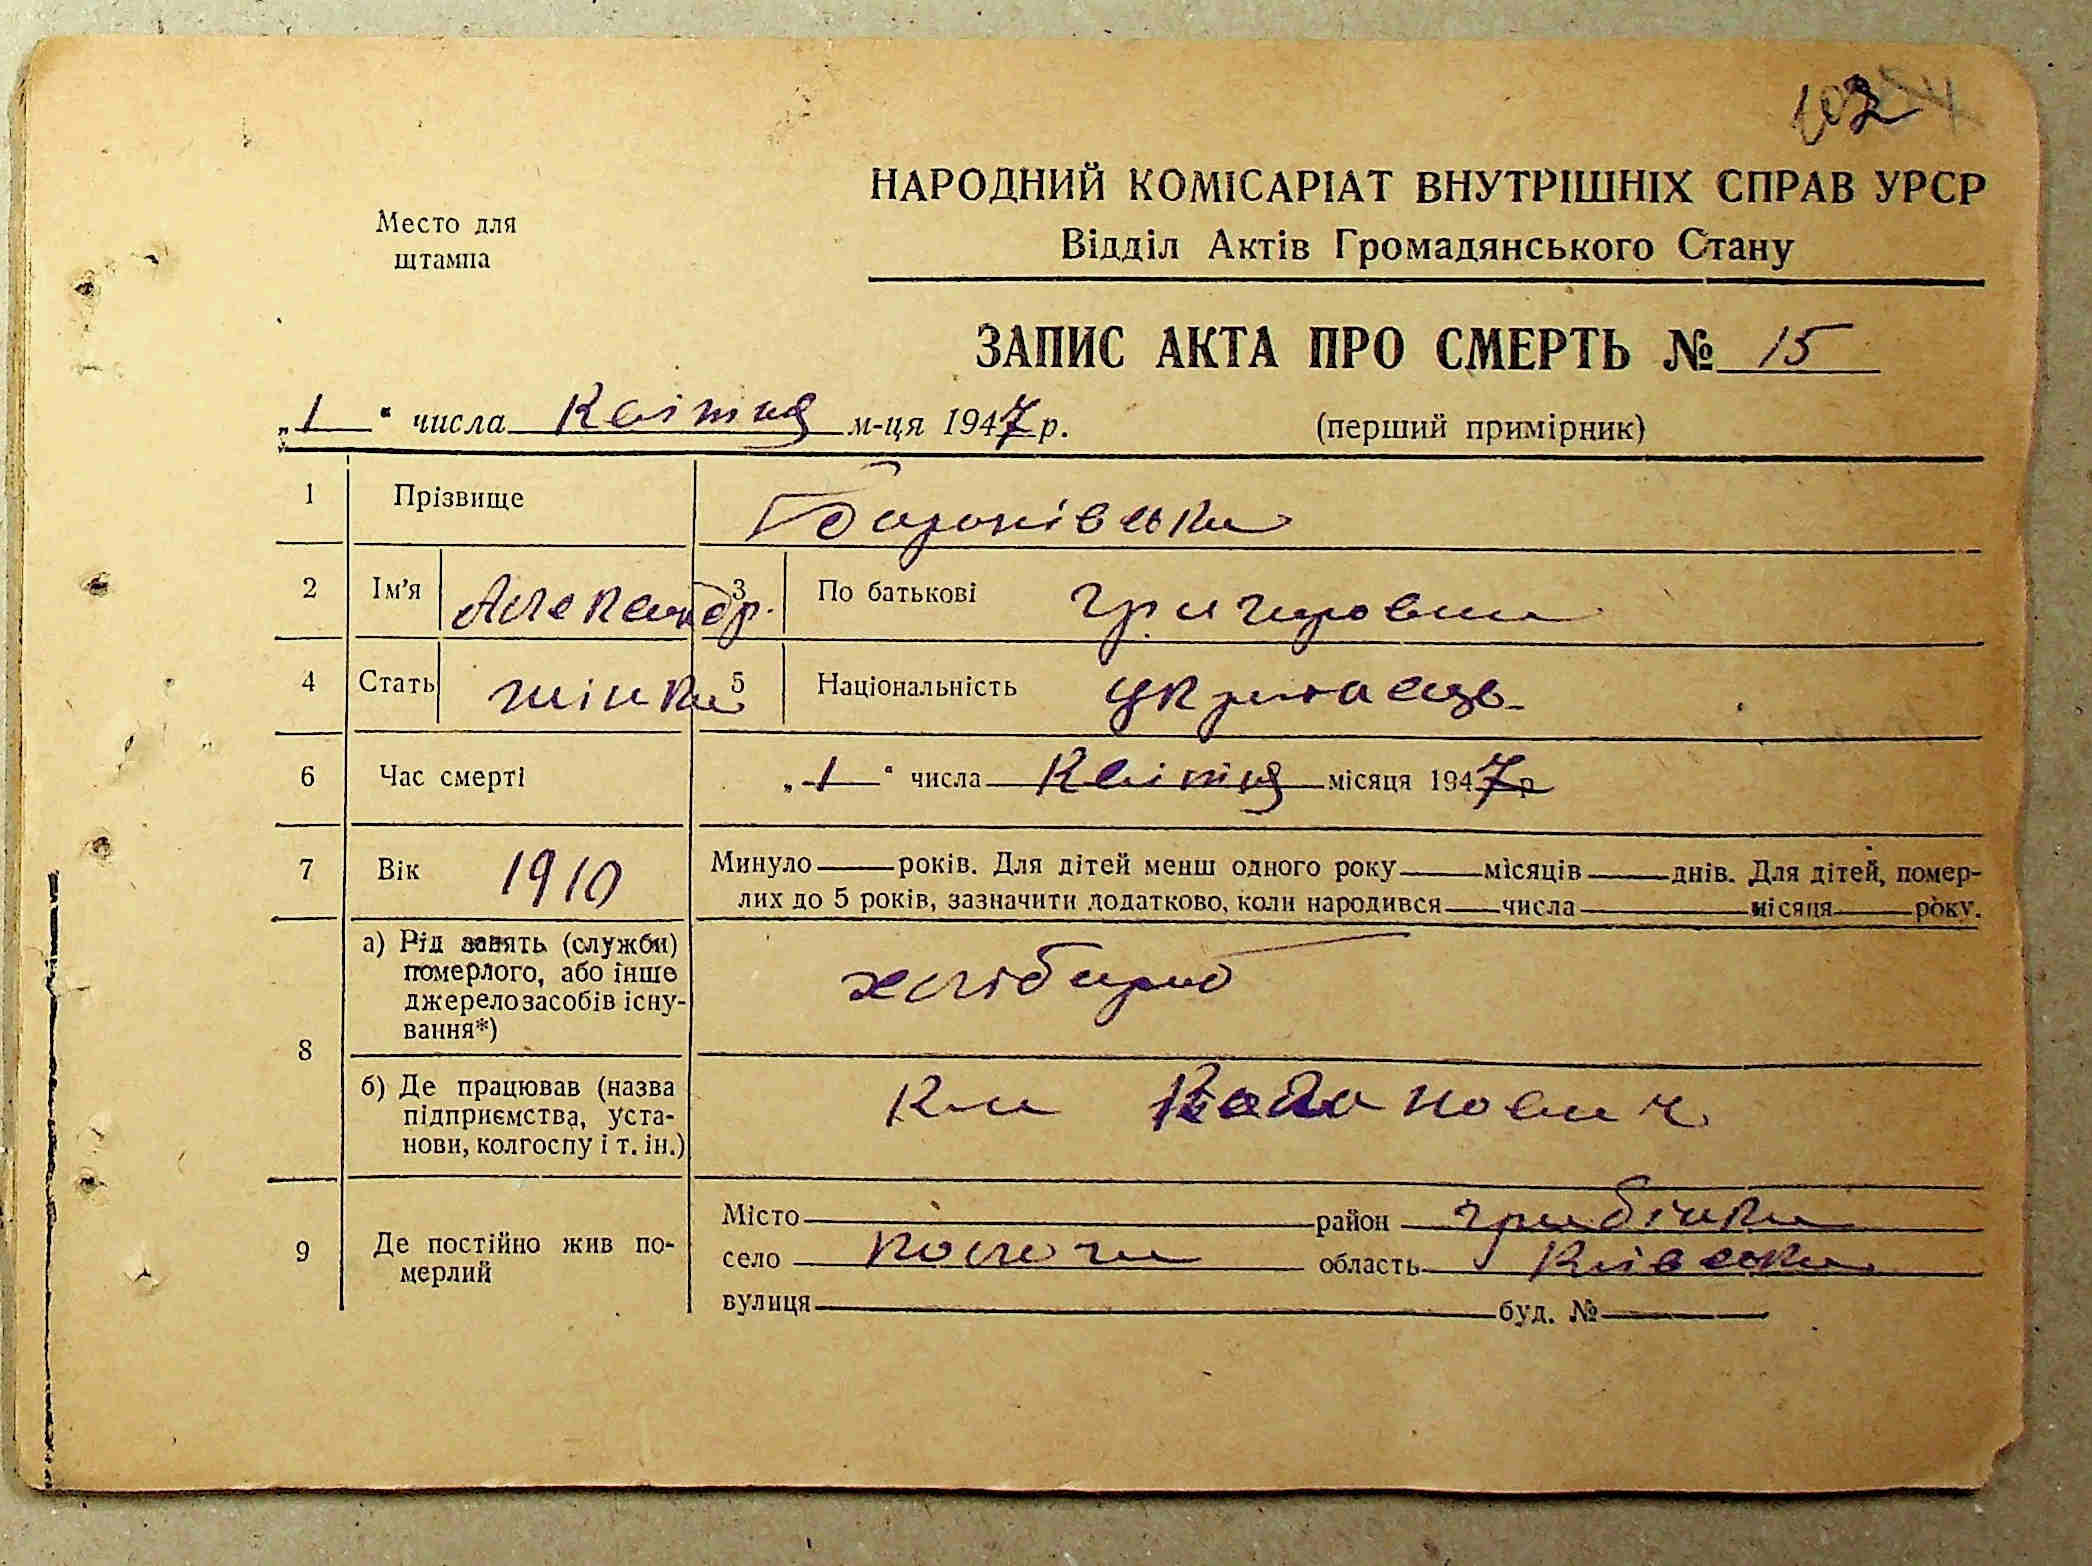 102
НАРОДНИЙ КОМІСАРІАТ ВНУТРІШНІХ СПРАВ УРСР
Место для штампа
Відділ Актів Громадянського Стану
ЗАПИС АКТА ПРО СМЕРТЬ № 15
„1“ числа Квітня м-ця 1947 р. (перший примірник)
1 Прізвище
2 Ім'я Александр. 3 По батькові
4 Стать жінка 5 Національність
6 Час смерті „1“ числа Квітня місяця 1947 р
7 Вік 1910 Минуло років. Для дітей менш одного року місяців днів. Для дітей, помер-
лих до 5 років, зазначити додатково, коли народився числа місяця року.
8 а) Рід занять (служби) померлого, або інше джерело засобів існу-вання*) хлібороб
б) Де працював (назва підприємства, уста-нови, колгоспу і т. ін.)
9 Де постійно жив по-мерлий
Місто район
село область Київська
вулиця буд. №